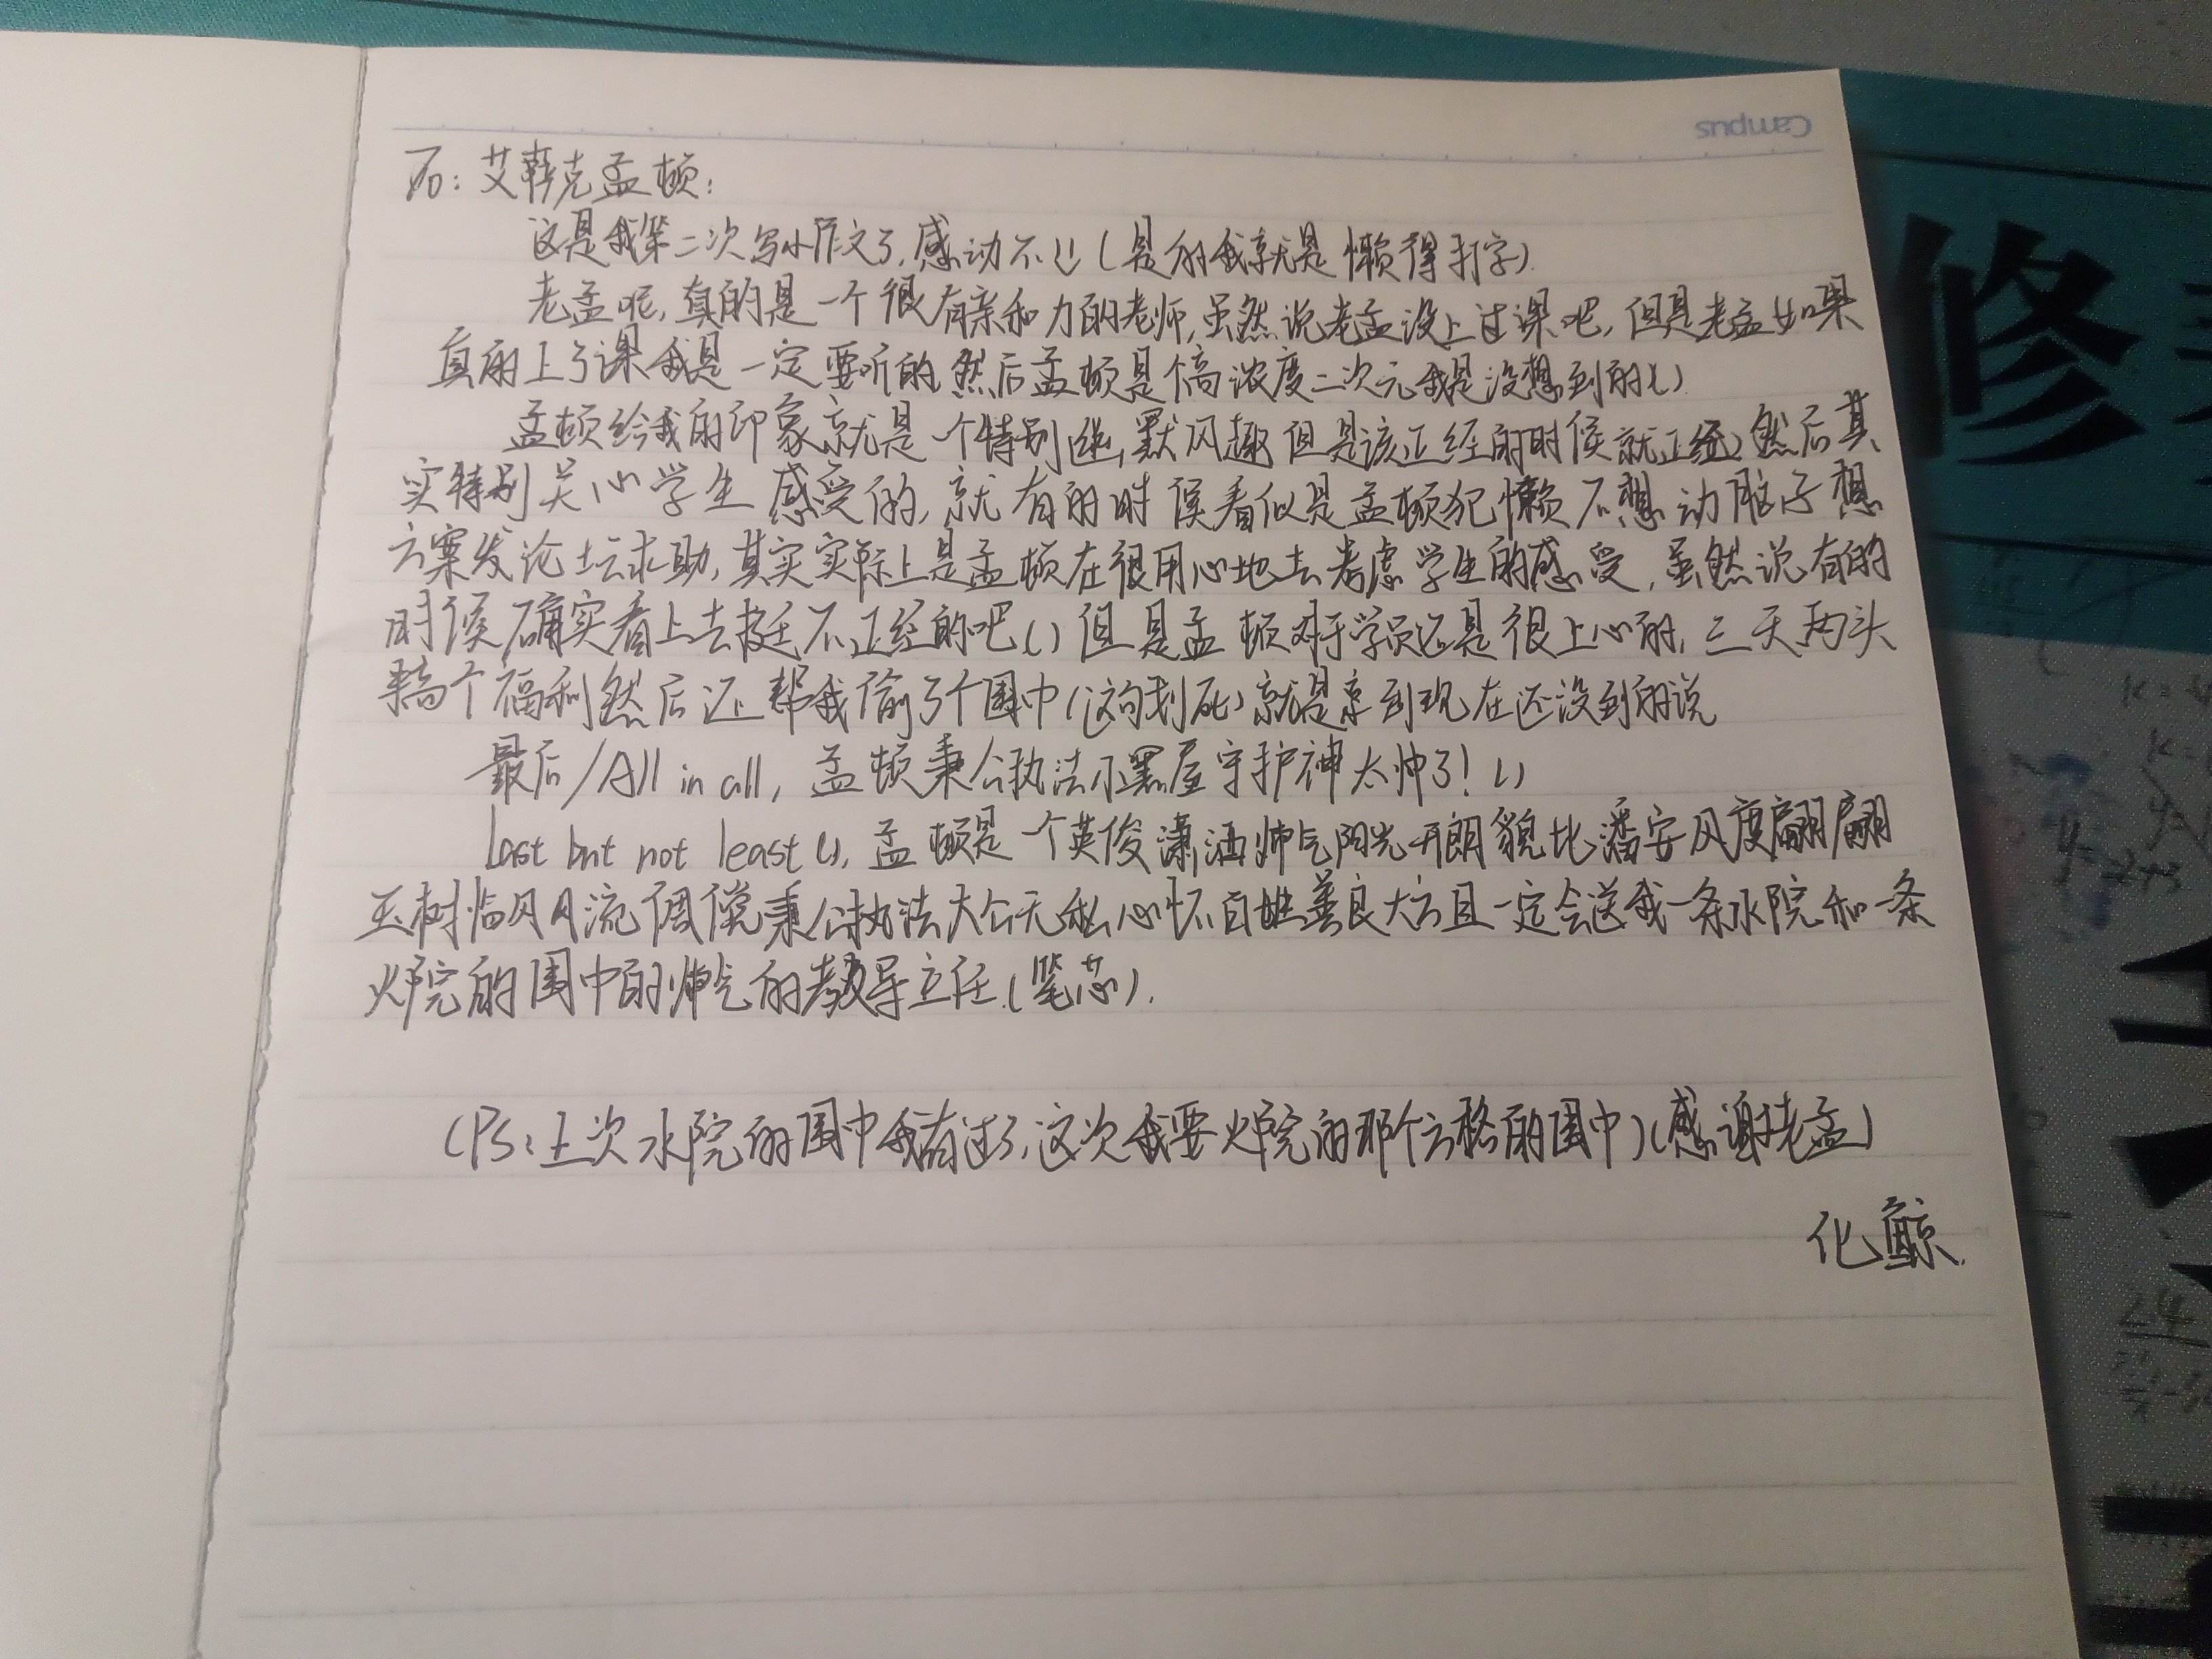 Campus
To：艾赫克孟顿：
这是我第二次写小作文了，感动不！！（是的我就是懒得打字）
老孟呢，真的是一个很有亲和力的老师，虽然说老孟没上过课吧，但是老孟如果
真的上了课我是一定要听的 然后孟顿是个高浓度二次元我是没想到的（）
孟顿给我的印象就是一个特别幽默风趣但是该正经的时候就正经，然后其
实特别关心学生感受的，就有的时候看似是孟顿犯懒不想动脑子想
方案发论坛求助，其实实际上是孟顿在很用心地去考虑学生的感受，虽然说有的
时候确实看上去挺不正经的吧（）但是孟顿对于学员还是很上心的，三天两头
搞个福利然后还帮我偷了个围巾（这句划死）就是亲到现在还没到的说
最后/All in all，孟顿秉公执法小黑屋守护神太帅了！（）
Last but not least（），孟顿是一个英俊潇洒帅气阳光开朗貌比潘安风度翩翩
玉树临风风流倜傥秉公执法大公无私心怀百姓善良大方且一定会送我一条水院和一条
火院的围巾的帅气的教导主任（笔芯）．
（Ps：上次水院的围巾我有过了，这次我要火院的那个方格的围巾）（感谢老孟）
化鲸．
修